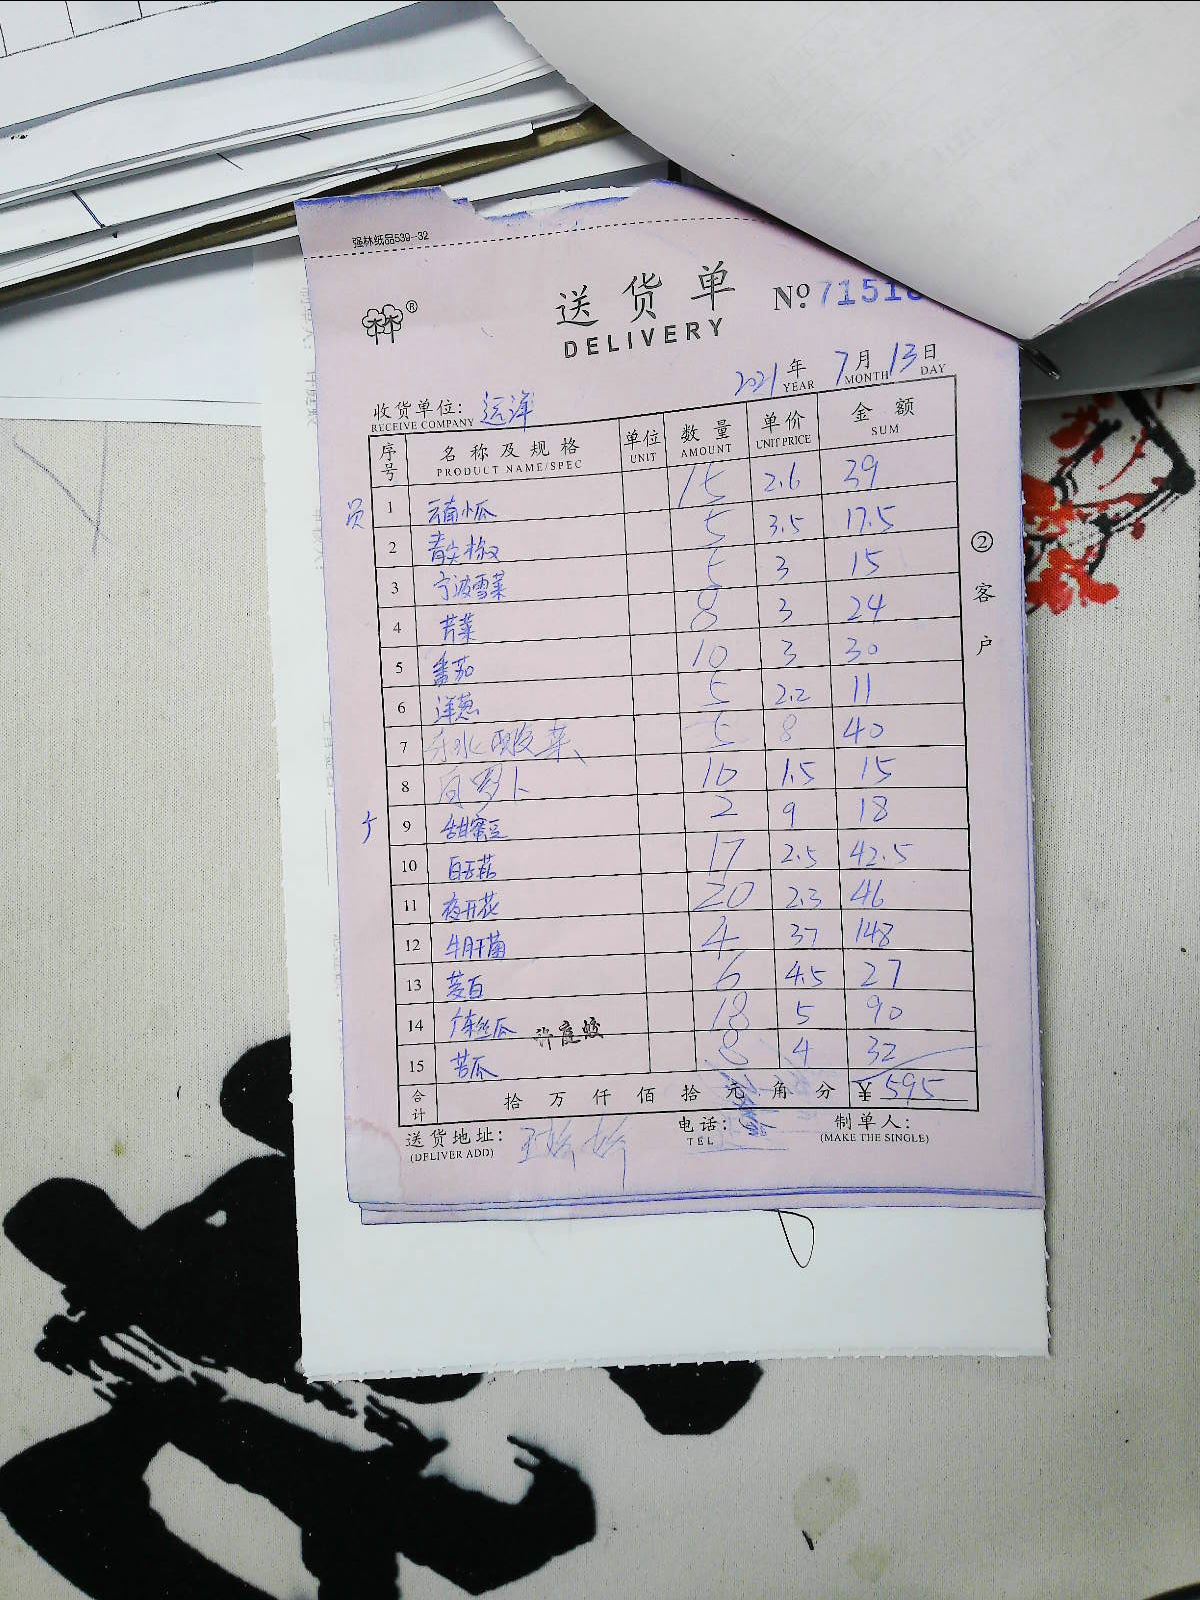 强林纸品539-32
送货单 No 7151
DELIVERY
2021年 7月 13日
YEAR MONTH DAY
收货单位: 远洋
RECEIVE COMPANY
序号 名称及规格 单位 数量 单价 金额
PRODUCT NAME/SPEC UNIT AMOUNT UNIT PRICE SUM
员
1 云南小瓜 15 2.6 39
2 青尖椒 5 3.5 17.5
3 宁波雪菜 5 3 15
4 芹菜 8 3 24
5 番茄 10 3 30
6 洋葱 5 2.2 11
7 酸菜 5 8 40
8 白萝卜 10 1.5 15
9 甜蜜豆 2 9 18
10 白玉菇 17 2.5 42.5
11 夜开花 20 2.3 46
12 牛肝菌 4 37 148
13 茭白 6 4.5 27
14 广东丝瓜 18 5 90
15 苦瓜 8 4 32
合计 拾 万 仟 佰 拾 元 角 分 ¥ 595
送货地址: 电话: 制单人:
(DELIVER ADD) TEL (MAKE THE SINGLE)
②客户